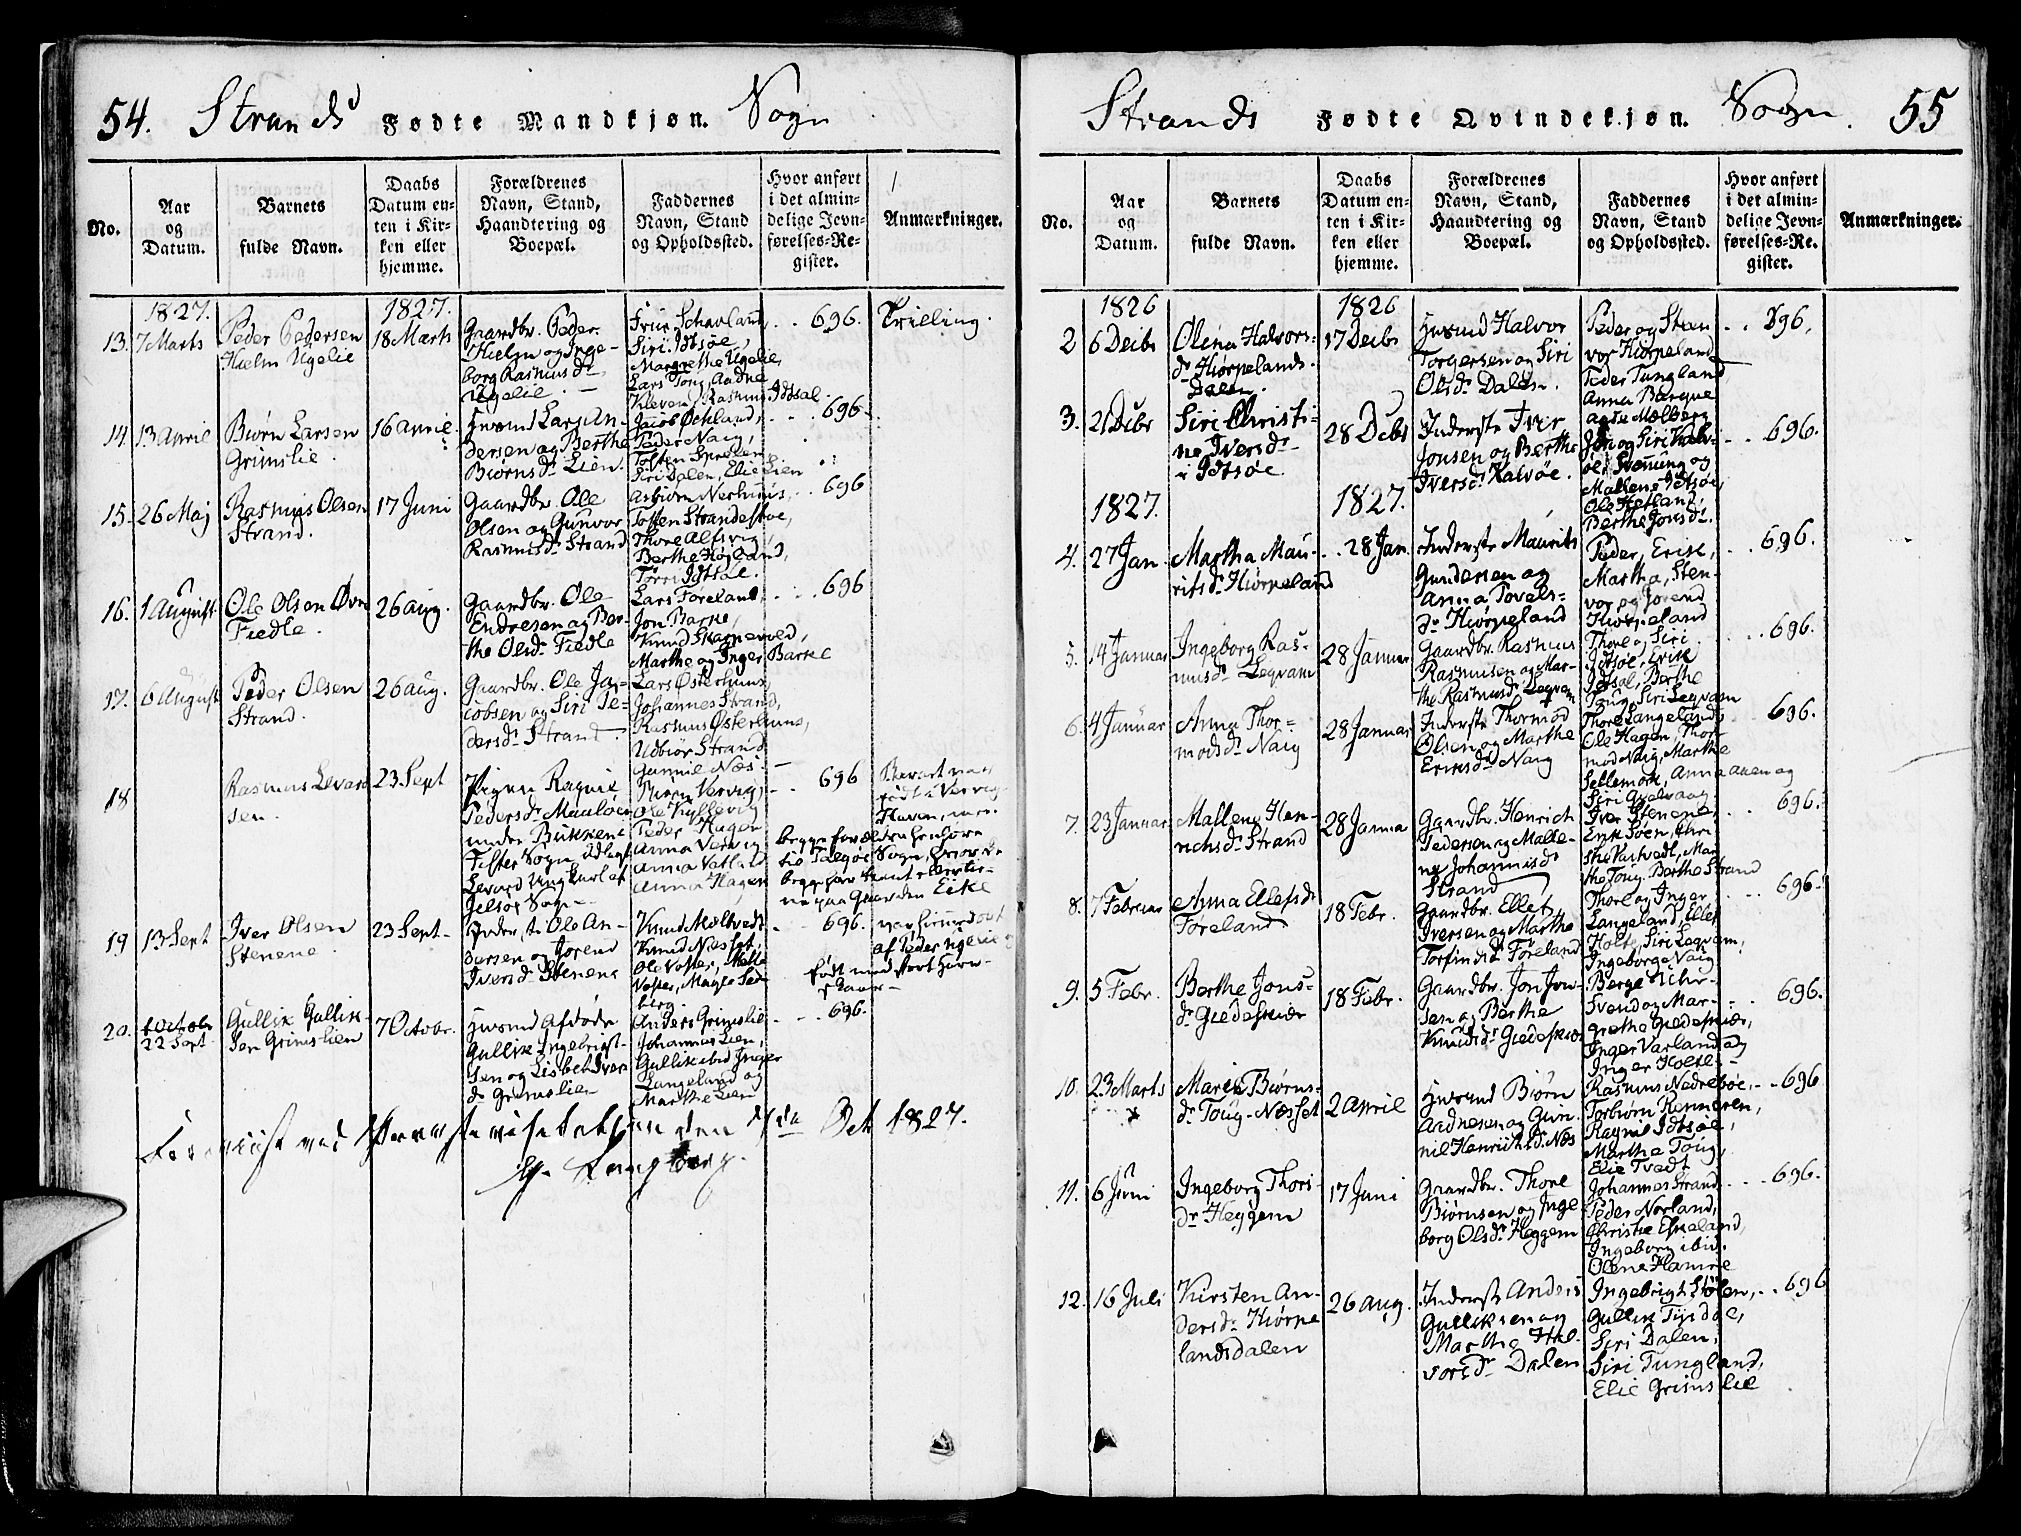 54. Strands Fødte Mandkjøn. Sogn
No.
Aar og Datum.
Barnets fulde Navn.
Daabs Datum enten i Kirken eller hjemme.
Forældrenes Navn, Stand, Haandtering og Boepæl.
Faddernes Navn, Stand og Opholdssted.
Hvor anført i det almindelige Jevnførelses-Register.
Anmærkninger.
1827. 1827.
13. 7 Marts
Peder Pedersen
Hielm Ugelie
18 Marts
Gaardbr. Peder
Hielm og Inge-
borg Rasmusdr
Ugelie
Siri Idtsøe,
Margrethe Ugelie,
Lars Toug, Aadne
Kleven, Rasmus Idtsal.
696.
Trilling.
14. 13 April
Biørn Larsen
Grimslie.
16 April
Huusmd Lars An-
dersen og Berthe
Biørnsdr Lien.
Jacob Øckland,
Peder Naig,
Siri Dalen, Elie Lien
696.
15. 26 Maj
Rasmus Olsen
Strand.
17 Juni
Gaardbr. Ole
Olsen og Gunvor
Rasmusdr Strand
Asbiørn Nerhuus,
Tosten Strandestøe,
Thore Alfsvig,
Berthe Høgland,
Idtsøe.
696
16. 1 August
Ole Olsen Øvre
Fiedle.
26 Aug.
Gaardbr. Ole
Endresen og Ber-
the Olsdr Fiedle
Lars Føreland,
Jon Barke,
Knud
Marthe og Inger Barke
696
17. 6 August
Peder Olsen
Strand.
26 Aug.
Gaardbr. Ole Ja-
cobsen og Siri Pe-
dersdr Strand
Lars Østerhuus,
Johannes Strand,
Rasmus Østerhuus,
Udbiør Strand
Gunnil Næs.
18
Rasmus Levard
sen.
23 Sept
Pigen Ragnil
Pedersdr
under
Sogn, Udlagt
Levard Ungkarl af
Jelsøe Sogn
Biørn Vervig,
Ole Kyllevig
Peder Hagen
Anna Vervig
Anna
Anna Hagen
696
Barnet var
født i Vervig-
Haven, men
begge Forældrene henhøre
til Sogn,
begge
paa Gaarden Eike
19 13 Sept
Iver Olsen
Stenene.
23 Sept
Inderste Ole An-
dersen og Jorend
Iversdr Stenene
Knud Moltvedt
Knud Næsset,
696.
af Peder Ugelie og
født med stort Hare-
skaar
20. 1 Octobr
22 Sept
Gullik Gullik-
sen Grimslien
7 Octobr.
Huusmd Afdøde
Gullik Ingebrigt-
sen og Lisbeth Ivers
dr Grimslie
Anders Grimslie,
Johannes Lien,
Gullik ibid Inger
Langeland og
Marthe Lien
696.
den Oct 1827.

Strands Fødte Qvindekjøn. Sogn. 55
No.
Aar og Datum.
Barnets fulde Navn.
Daabs Datum enten i Kirken eller hjemme.
Forældrenes Navn, Stand, Haandtering og Boepæl.
Faddernes Navn, Stand og Opholdssted.
Hvor anført i det almindelige Jevnførelses-Register.
Anmærkninger.
1826 1826
2 6 Decbr
Olena Halvors-
dr Hiørpelands-
Dalen.
17 Decbr
Huusmd Halvor
Torgersen og Siri
Olsdr Dalen.
Peder og Sten-
vor Hiørpeland
Peder Tungland
Anna Barque
696.
3. 21 Decbr
Siri Christi-
ne Iversdr
i Idtsøe
28 Decbr
Inderste Iver
Jonsen og Berthe
Iversdr Kalvøe.
Jon og Siri Kalv-
øe, Svenung og
Mallene Idtsøe,
Ole Hetland,
Berthe Jonsdr.
696.
1827. 1827.
4. 27 Jan.
Martha Mau-
ritsdr Hiørpeland
28 Jan.
Inderste Maurits
Gundersen og
Anna Povels-
dr Hiørpeland
Peder, Erik,
Martha, Sten-
vor og Jorend
Hiørpeland
696.
5. 14 Januar
Ingeborg Ras-
musdr Legvam
28 Januar
Gaardbr. Rasmus
Rasmussen og Mar-
the Rasmusdr Legvam
Thore og Siri
Idtsøe, Erik
Idtsal, Berthe
Toug, Siri Legvam
696.
6. 4 Januar
Anna Thor-
modsdr Naig
28 Januar
Inderste Thormod
Olsen og Marthe
Eriksdr Naig
Thore Langeland,
Ole Hagen, Thor-
mod Naig, Marthe
Sellemork, Anna Aaen og
Siri
696.
7. 23 Januar
Mallena Hen-
richsdr Strand
28 Janua
Gaardbr. Henrich
Pedersen og Malle-
ne Johannisdr
Strand
Iver Stenene,
the Toug, Berthe Strand
696.
8. 7 Februar
Anna Ellefsdr
Føreland
18 Febr.
Gaardbr. Ellef
Iversen og Marthe
Torfindsdr Føreland
Thore og Inger
Langeland, Ellef
Holte, Siri Legvam,
Ingeborge Naig
696.
9. 5 Febr.
Berthe Jons-
dr Giedeskiær
18 Febr.
Gaardbr. Jon Jon-
sen og Berthe
Knudsdr Giedeskiær
Svend og Mar-
grethe Giedeskiær,
Inger Varland og
Inger Holte
696.
10. 23 Marts
Maria Biørns-
dr Toug-Næsset
2 April
Huusmd Biørn
Aadnesen og Gun-
nil Henrichsdr Næs
Rasmus Nedrebøe,
Torbiørn Renneren,
Ragnil Idtsøe,
Martha Toug,
Elie Tvedt
696
11. 6 Juni
Ingeborg Thors-
dr Heggem
17 Juni
Gaardbr. Thore
Biørnsen og Inge
borg Olsdr Heggem
Johannes Strand
Peder Norland,
Christie Eskeland,
Ingeborg ibid.
Olene Hamre
696.
12. 16 Juli
Kirsten An-
dersdr Hiørpe
landsdalen
26 Aug.
Inderste Anders
Gulliksen og
Martha Hal-
vorsdr Dalen
Ingebrigt Stølen,
Gullik Tysdal,
Siri Dalen,
Siri Tungland,
Elie Grimslie
696